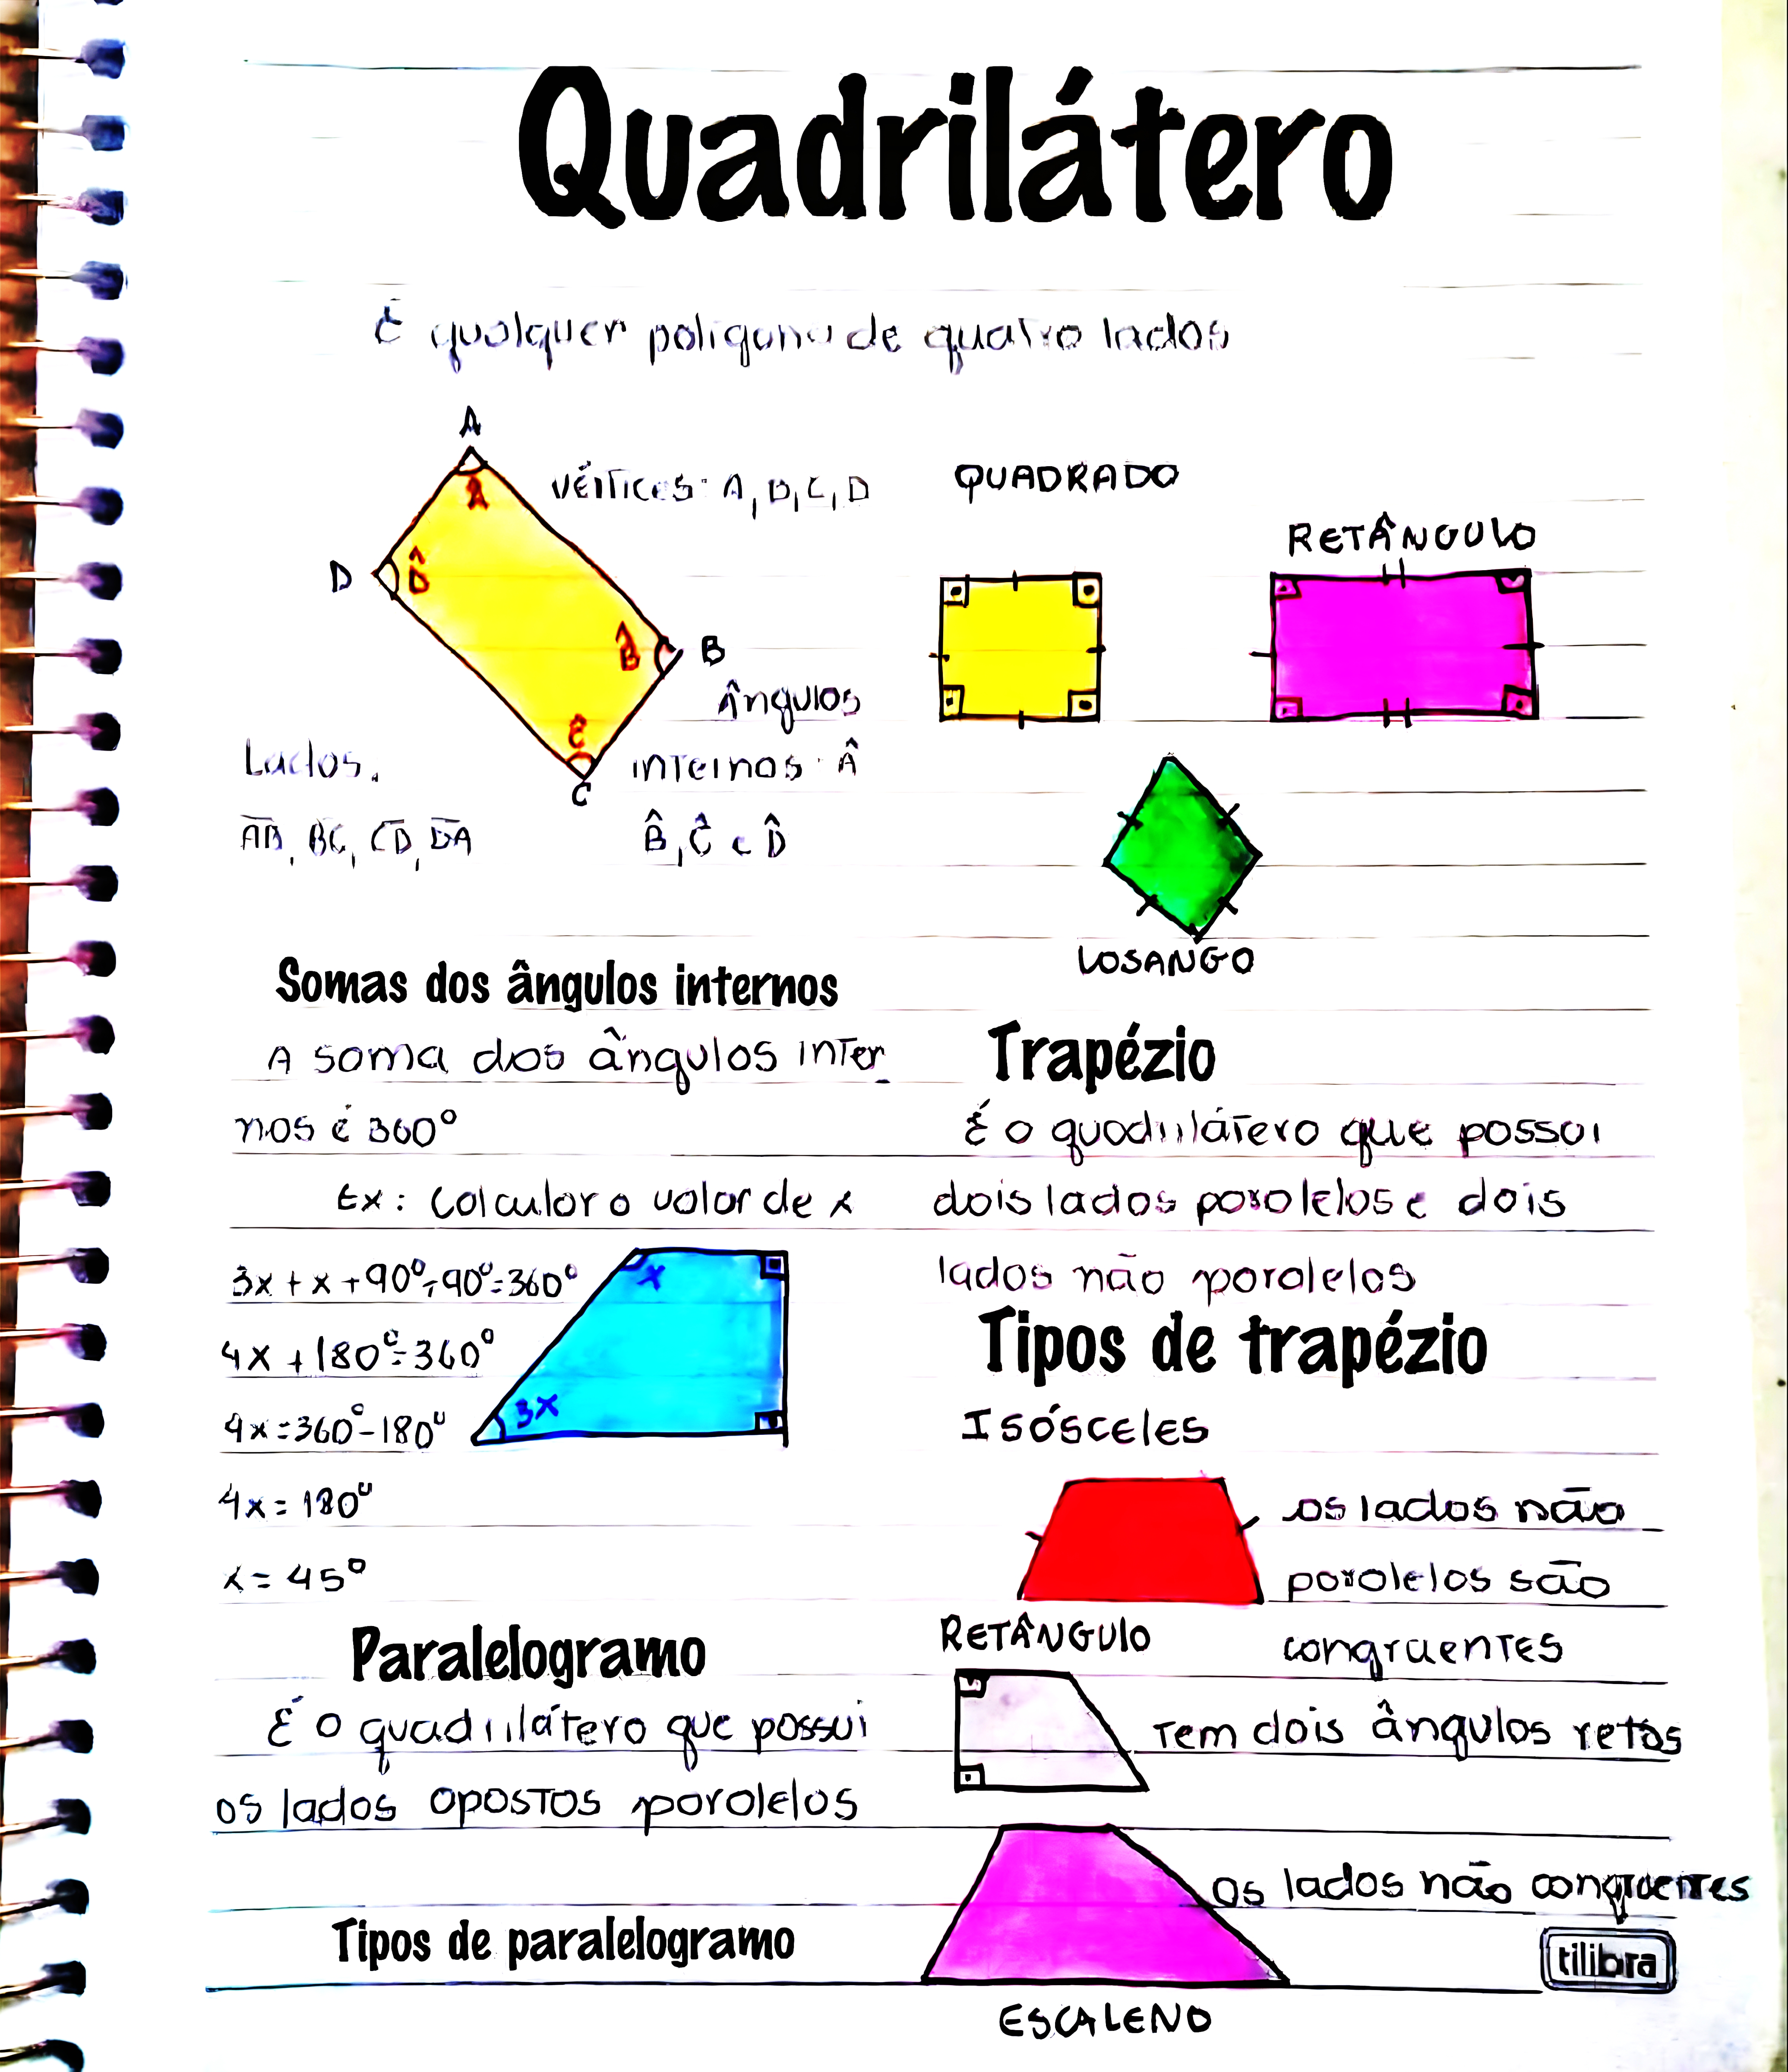 Quadrilátero
É qualquer polígono de quatro lados
A
Vértices: A, B, C, D
Â
D
D̂
B̂
B
Ângulos
Ĉ
C
Lados.
internos: Â
AB, BC, CD, DA
B̂, Ĉ e D̂
QUADRADO
RETÂNGULO
LOSANGO
Somas dos ângulos internos
A soma dos ângulos inter
nos é 360°
Ex: Calcular o valor de x
3x + x + 90° + 90° = 360°
x
4x + 180° = 360°
3x
4x = 360° - 180°
4x = 180°
x = 45°
Paralelogramo
É o quadrilátero que possui
os lados opostos paralelos
Tipos de paralelogramo
Trapézio
É o quadrilátero que possui
dois lados paralelos e dois
lados não paralelos
Tipos de trapézio
ISÓSCELES
os lados não
paralelos são
congruentes
RETÂNGULO
Tem dois ângulos retos
Os lados não congruentes
ESCALENO
tilibra